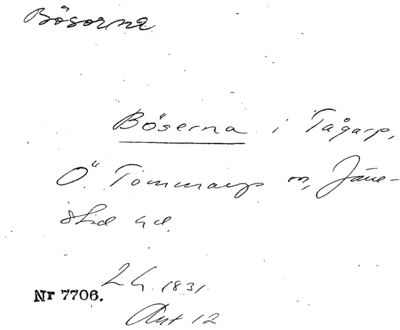 Bösorna
Böserna i Tågarp,
Ö. Tommarps sn, Järre-
stad hd.
Lh. 1831
Nr 7706.
Avt 12